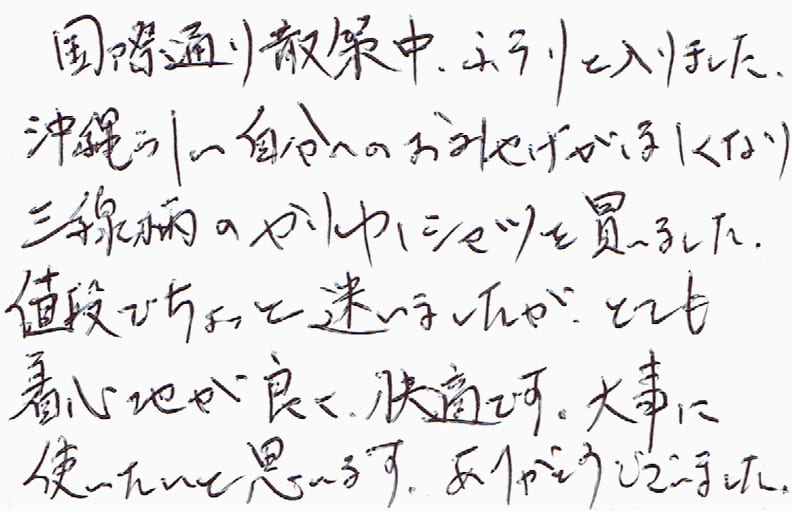 国際通り散策中、ふらりと入りました。
沖縄らしい自分へのおみやげがほしくなり
三線柄のかりゆしシャツを買いました。
値段でちょっと迷いましたが、とても
着心地が良く、快適です。大事に
使いたいと思います。ありがとうございました。